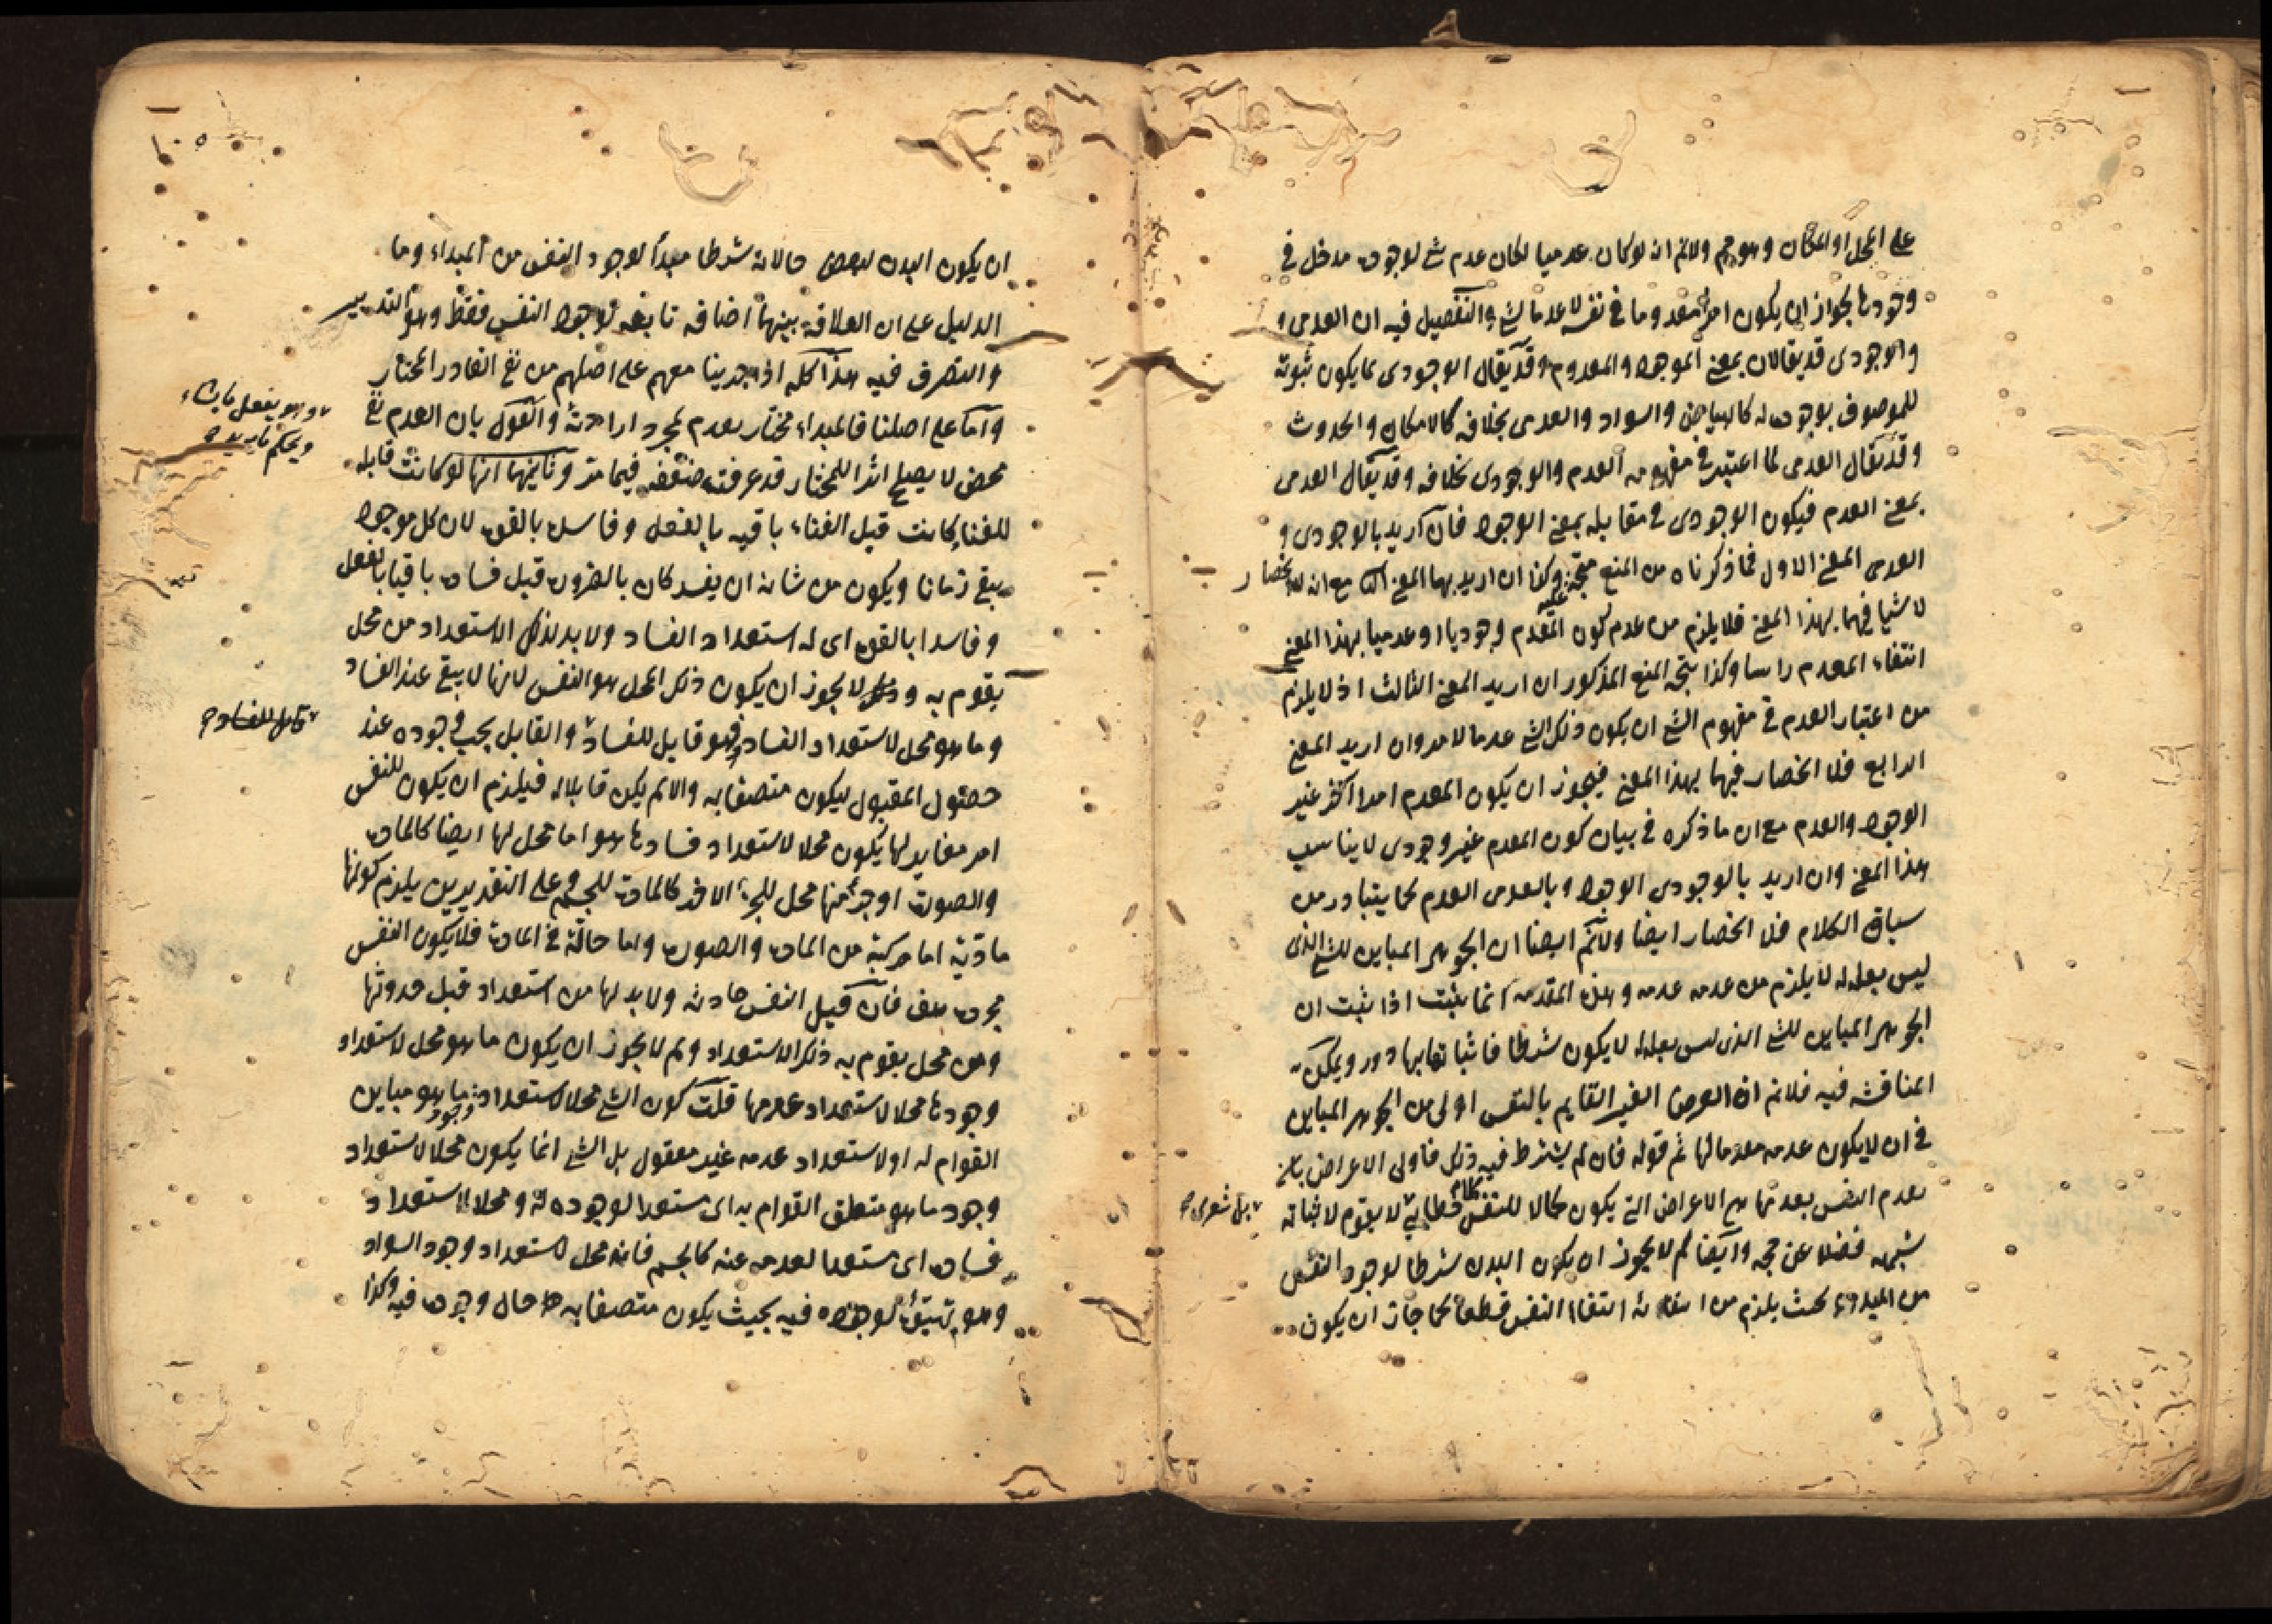 على المحل او المكان وهو مم ولانم انه لو كان عدميا لكان عدم شئ لوجوده مدخل فى
وجودها لجواز ان يكون امرا معدوما فى نفسه لا عدما لشئ والتفصيل فيه ان العدمى و
والوجودى قد يقالان بمعنى الموجود والمعدوم وقد يقال الوجودى لما يكون ثبوته
للموصوف بوجوده له كالبياض والسواد والعدمى بخلافه كالامكان والحدوث
وقد يقال العدمى لما اعتبر فى مفهومه العدم والوجودى بخلافه وقد يقال العدمى
بمعنى العدم فيكون الوجودى فى مقابله بمعنى الوجود فان اريد بالوجودى و
العدمى المعنى الاول فما ذكرناه من المنع متجه وكذا ان اريد بهما المعنى مع انه لا انحصار
لاشيا فيهما بهذا المعنى فلا يلزم من عدم كون المعدم وجوديا او عدميا بهذا المعنى
انتفاء المعدم راسا وكذا يتجه المنع المذكور ان اريد المعنى الثالث اذ لا يلزم
من اعتبار العدم فى مفهوم الشئ ان يكون ذلك الشئ عدما لامر وان اريد المعنى
الرابع فلا انحصار فيهما بهذا المعنى فيجوز ان يكون المعدم امرا اخر غير
الوجود والعدم مع ان ما ذكره فى بيان كون المعدم غير وجودى لا يناسب
هذا المعنى وان اريد بالوجودى الوجود وبالعدمى العدم كما يتبادر من
سياق الكلام فلا انحصار ايضا ولانم ايضا ان الجوهر المباين للشئ الذى
ليس بعلة له لا يلزم من عدمه عدمه وهذه المقدمة انما يثبت اذا ثبت ان
الجوهر المباين للشئ الذى ليس بعلة له لا يكون شرطا فاثباتها بها دور ويمكن
المناقشة فيه فلانم ان العرض الغير القايم بالنفس اولى من الجوهر المباين
فى ان لا يكون عدمه معدما لها ثم قوله فان لم يشترط فيه ذلك فاولى الاعراض بان
يعدم النفس بعدمها هى الاعراض التى يكون كمالا للنفس كلام خطابى لا يقوم لاثباته
بل شعرى صح
شبهة فضلا عن حجة وايضا لم لا يجوز ان يكون البدن شرطا لوجود النفس
من المبدء بحيث يلزم من انتفائه انتفاء النفس قطعا كما جاز ان يكون
١٠٥
ان يكون البدن لبعض حالاته شرطا معدا لوجود النفس من المبداء وما
الدليل على ان العلاقة بينهما اضافة تابعة لوجود النفس فقط وهو التدبير
والتصرف فيه هذا كله اذا جرينا معهم على اصلهم من نفى القادر المختار
واما على اصلنا فالمبداء مختار يعدم بمجرد ارادته والقول بان العدم نفى
وهو يفعل ما يشاء
ويحكم ما يريد صح
محض لا يصلح اثرا للمختار قد عرفت ضعفه فيما مر وثانيهما انها لو كانت قابلة
للفناء كانت قبل الفناء باقية بالفعل وفاسدة بالقوة لان كل موجود
يبقى زمانا ويكون من شانه ان يفسد كان بالضرورة قبل فساده باقيا بالفعل
وفاسدا بالقوة اى له استعداد الفساد ولا بد لذلك الاستعداد من محل
يقوم به ولا يجوز ان يكون ذلك المحل هو النفس لانها لا يبقى عند الفساد
وما هو محل لاستعداد الفساد فهو قابل للفساد والقابل يجب وجوده عند
قابل للفساد صح
حصول المقبول ليكون متصفا به والا لم يكن قابلا له فيلزم ان يكون للنفس
امر مغاير لها يكون محلا لاستعداد فسادها هو اما محل لها ايضا كالمادة
والصورة او جزء منها محل للجزء الاخر كالمادة للجسم وعلى التقديرين يلزم كونها
مادية اما مركبة من المادة والصورة واما حالة فى المادة فلا يكون النفس
مجردة هف فان قيل النفس حادثة ولا بد لها من استعداد قبل حدوثها
ومن محل يقوم به ذلك الاستعداد ولم لا يجوز ان يكون ما هو محل لاستعداد
وجودها محلا لاستعداد عدمها قلت كون الشئ محلا لاستعداد وجود ما هو مباين
القوام له او لاستعداد عدمه غير معقول بل الشئ انما يكون محلا لاستعداد
وجود ما هو متعلق القوام به اى مستعدا لوجوده له ومحلا لاستعداد
فساده اى مستعدا لعدمه عنه كالجسم فانه محل لاستعداد وجود السواد
وهو تهيؤه لوجوده فيه بحيث يكون متصفا به حال وجوده فيه وكذا